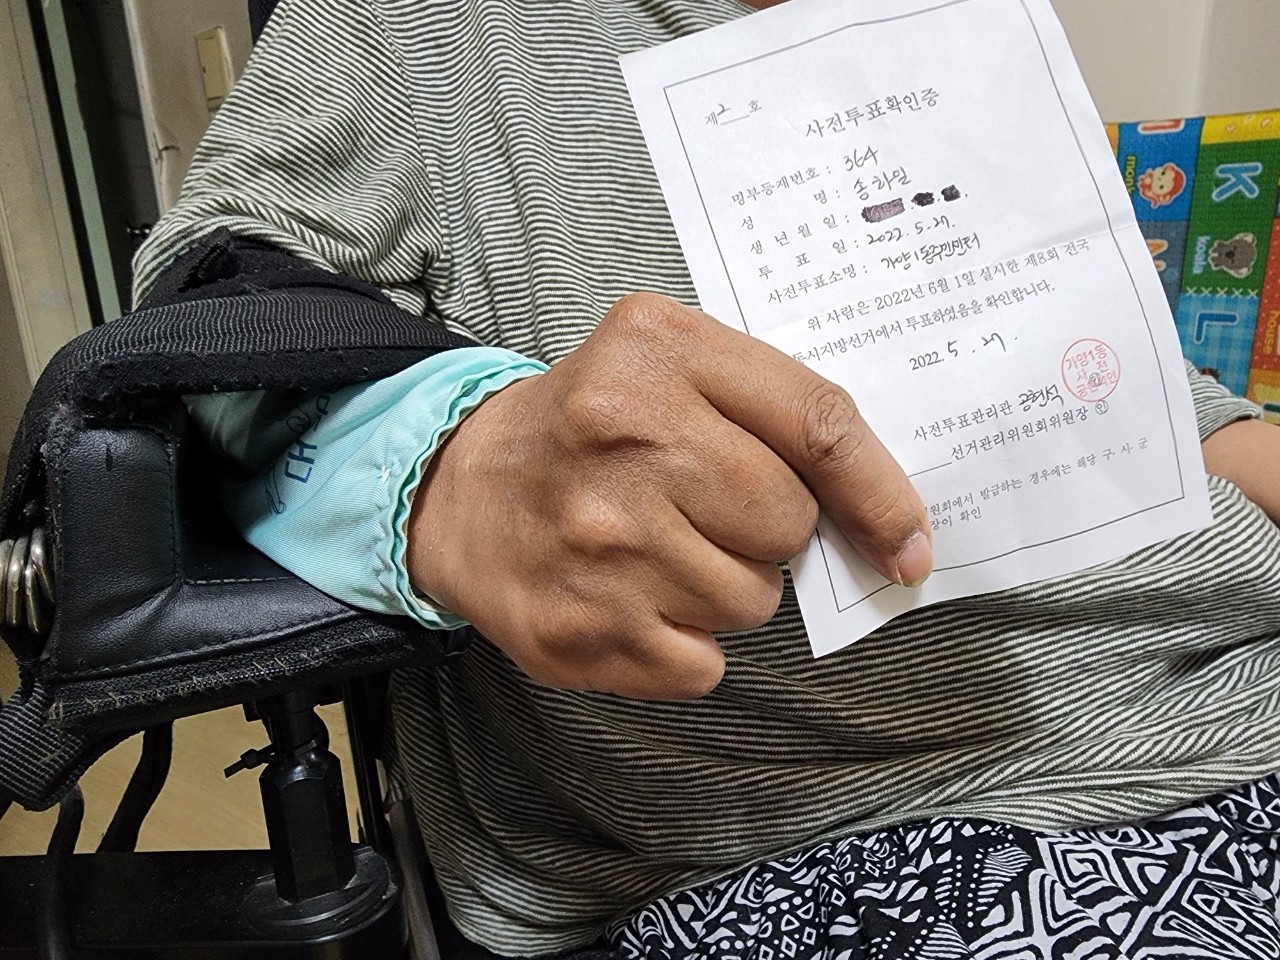 제 2 호
사전투표확인증
명부등재번호 : 364
성 명 : 송하일
생 년 월 일 :
투 표 일 : 2022. 5. 27.
사전투표소명 : 가양1동주민센터
위 사람은 2022년 6월 1일 실시한 제8회 전국
동시지방선거에서 투표하였음을 확인합니다.
2022. 5 . 27 .
가양1동
사전
사전투표관리관 공현석
선거관리위원회위원장 ㊞
원회에서 발급하는 경우에는 해당 구 시 군
장이 확인
monkey
K
koala
L